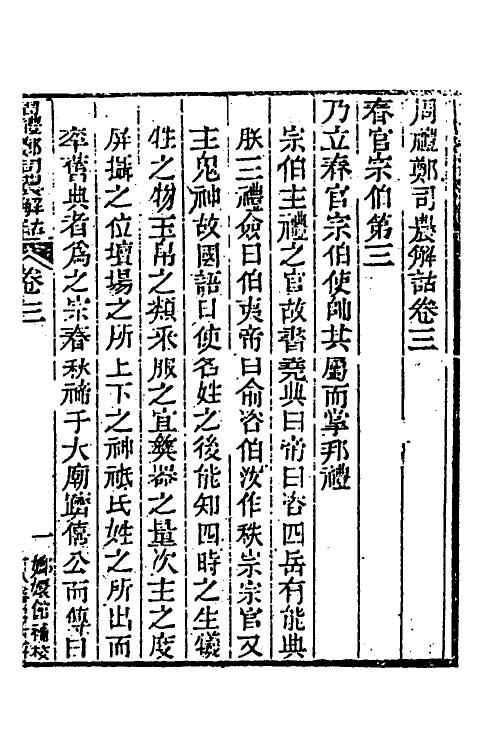 周禮鄭司農解詁卷三
春官宗伯第三
乃立春官宗伯使帥其屬而掌邦禮
宗伯主禮之官故書堯典曰帝曰咨四岳有能典
朕三禮僉曰伯夷帝曰俞咨伯汝作秩宗宗官又
主鬼神故國語曰使名姓之後能知四時之生犧
牲之物玉帛之類采服之宜彝器之量次主之度
屏攝之位壇場之所上下之神祇氏姓之所出而
率舊典者爲之宗春秋禘于大廟躋僖公而傳曰
周禮鄭司農解詁 卷三
一 嫏嬛館補校